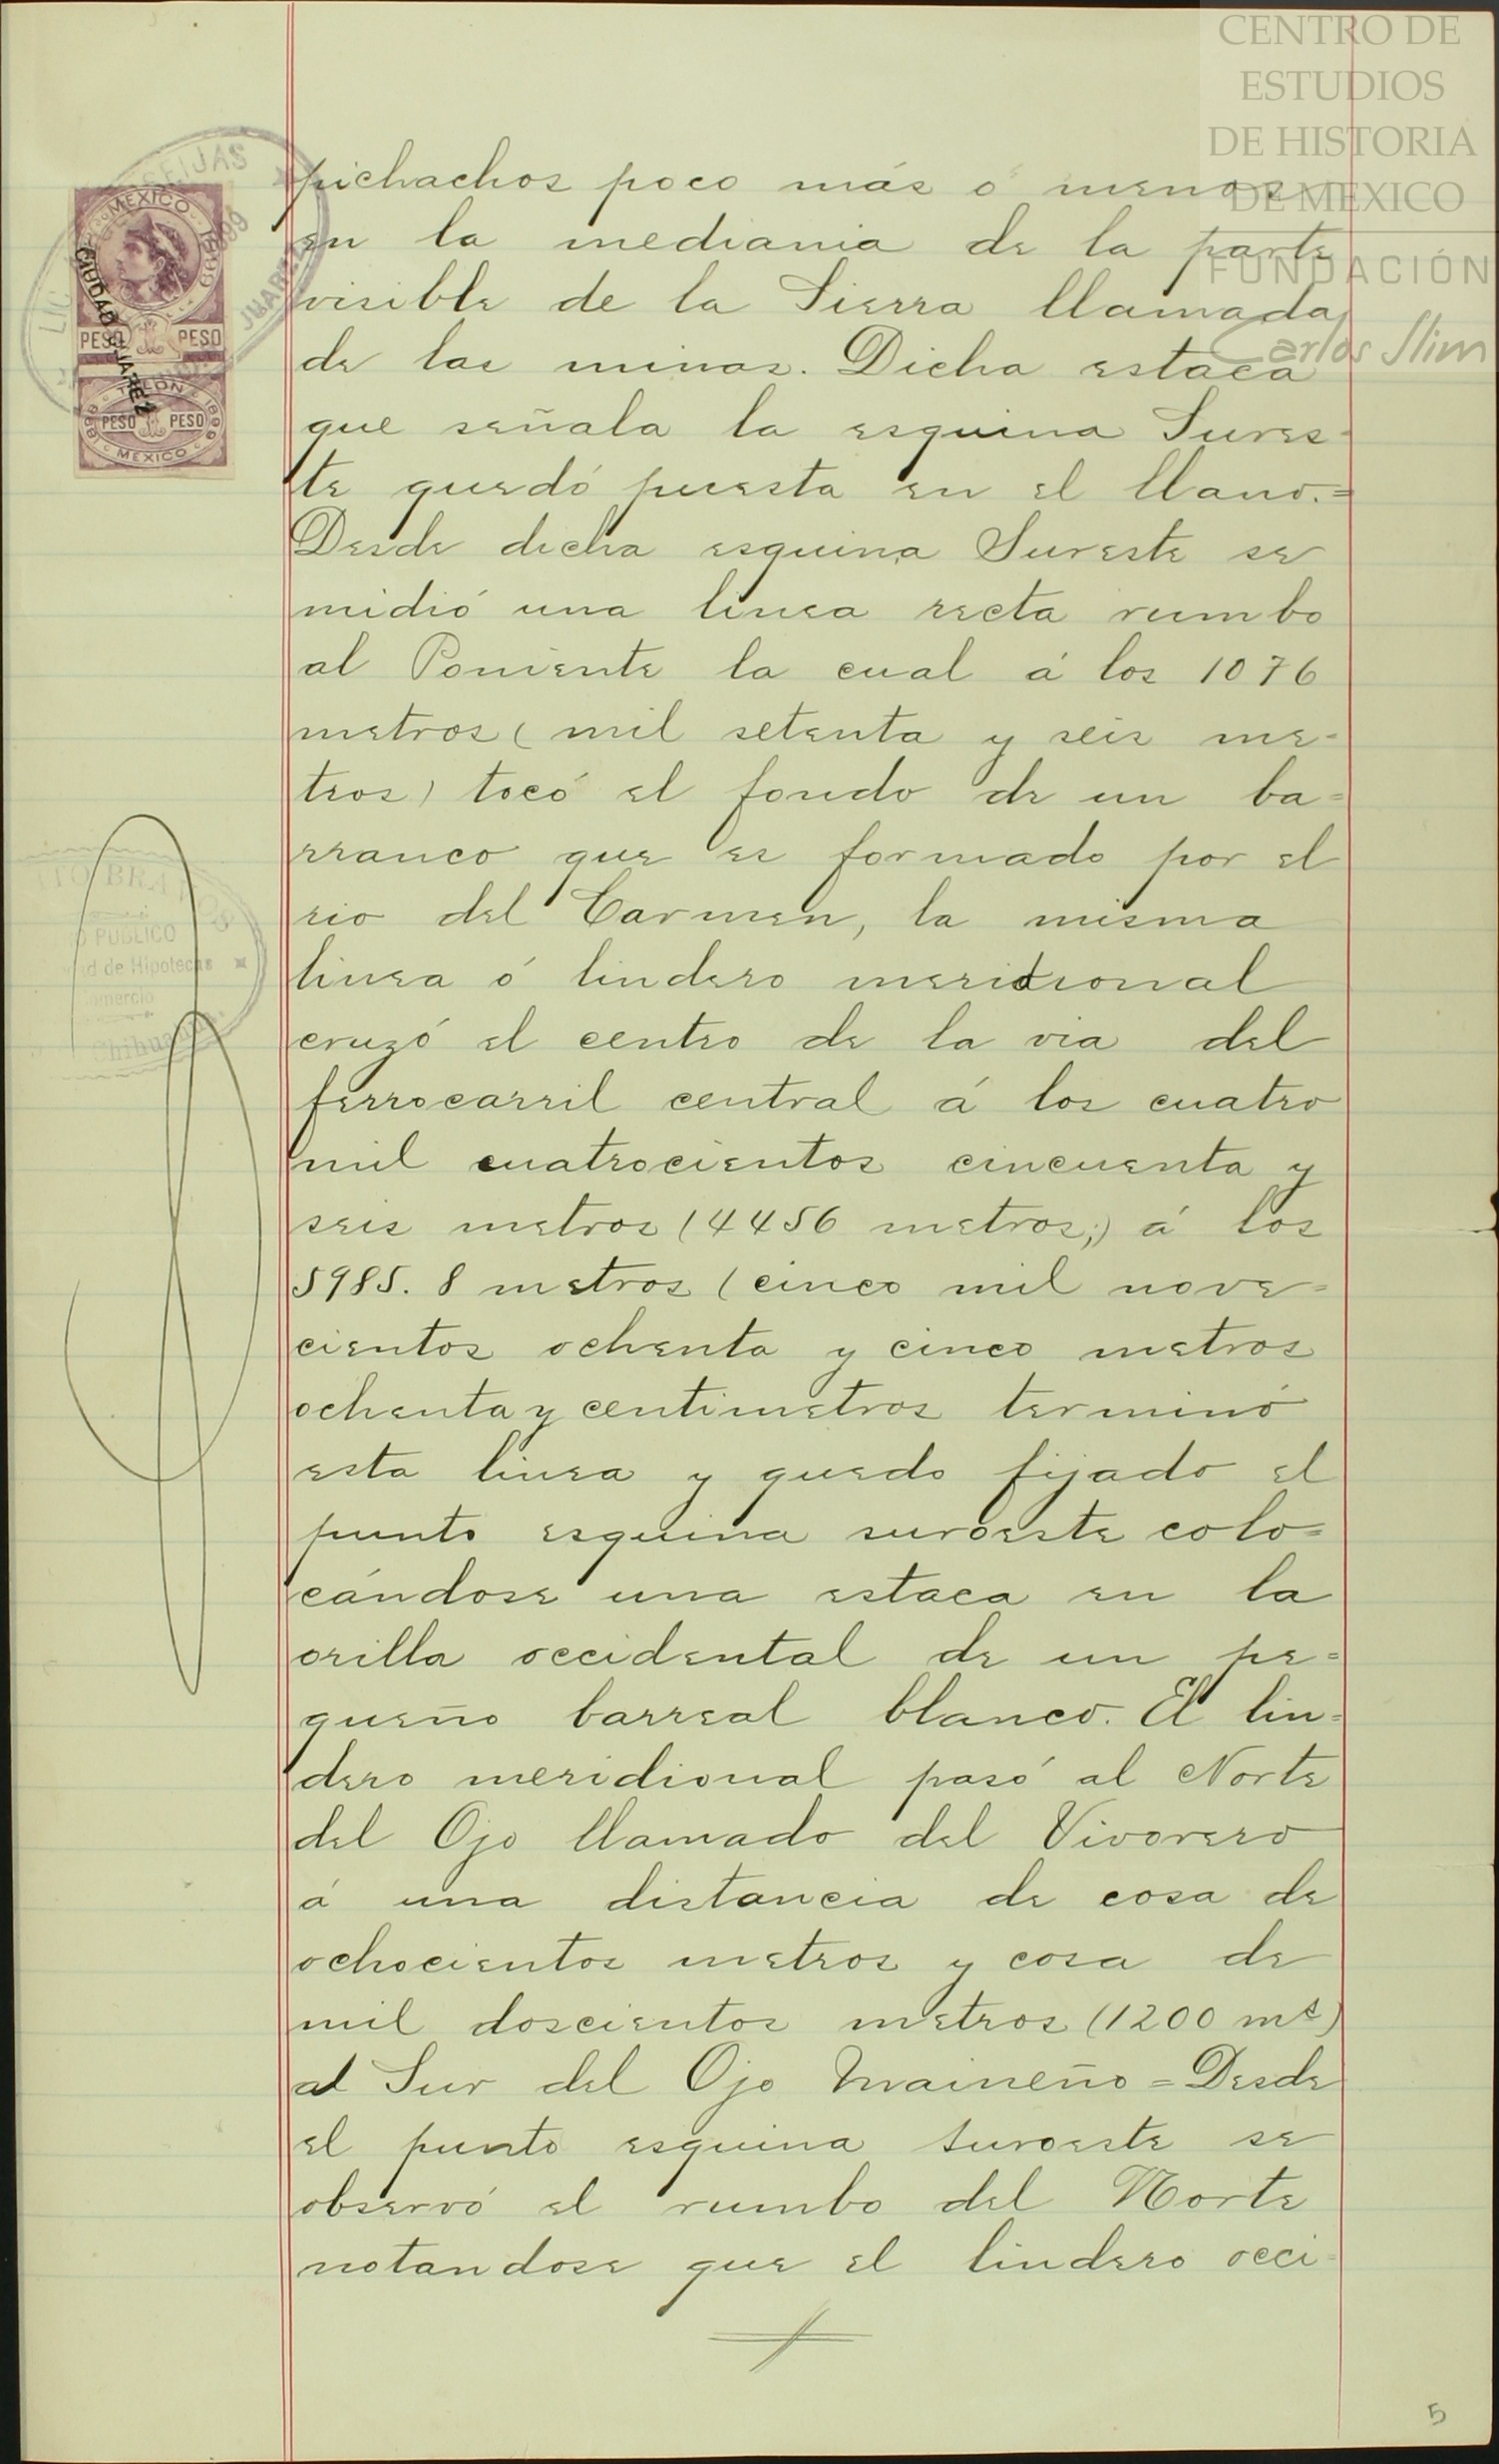 CENTRO DE
ESTUDIOS
DE HISTORIA
DE MEXICO
FUNDACIÓN
Carlos Slim
pichachos poco más ó menos
en la mediania de la parte
visible de la Sierra llamada
de las minas. Dicha estaca
que señala la esquina Sures-
te quedó puesta en el llano.=
Desde dicha esquina Sureste se
midió una linea recta rumbo
al Poniente la cual á los 1076
metros ( mil setenta y seis me-
tros) tocó el fondo de un ba=
rranco que es formado por el
rio del Carmen, la misma
linea ó lindero meridional
cruzó el centro de la via del
ferrocarril central á los cuatro
mil cuatrocientos cincuenta y
seis metros (4456 metros;) á los
5985. 8 metros (cinco mil nove=
cientos ochenta y cinco metros
ochenta y centimetros terminó
esta linea y quedo fijado el
punto esquina suroeste colo=
cándose una estaca en la
orilla occidental de un pe=
queño barreal blanco. El lin=
dero meridional pasó al Norte
del Ojo llamado del Vivorero
á una distancia de cosa de
ochocientos metros y cosa de
mil doscientos metros (1200 ms)
al Sur del Ojo Maineño = Desde
el punto esquina suroeste se
observó el rumbo del Norte
notandose que el lindero occi-
5
MEXICO
1898 99
CIUDAD JUAREZ
PESO PESO
TALON
1898 PESO PESO 1899
MEXICO
JUAREZ
PUBLICO
d de Hipotecas
Comercio
Chihuahua